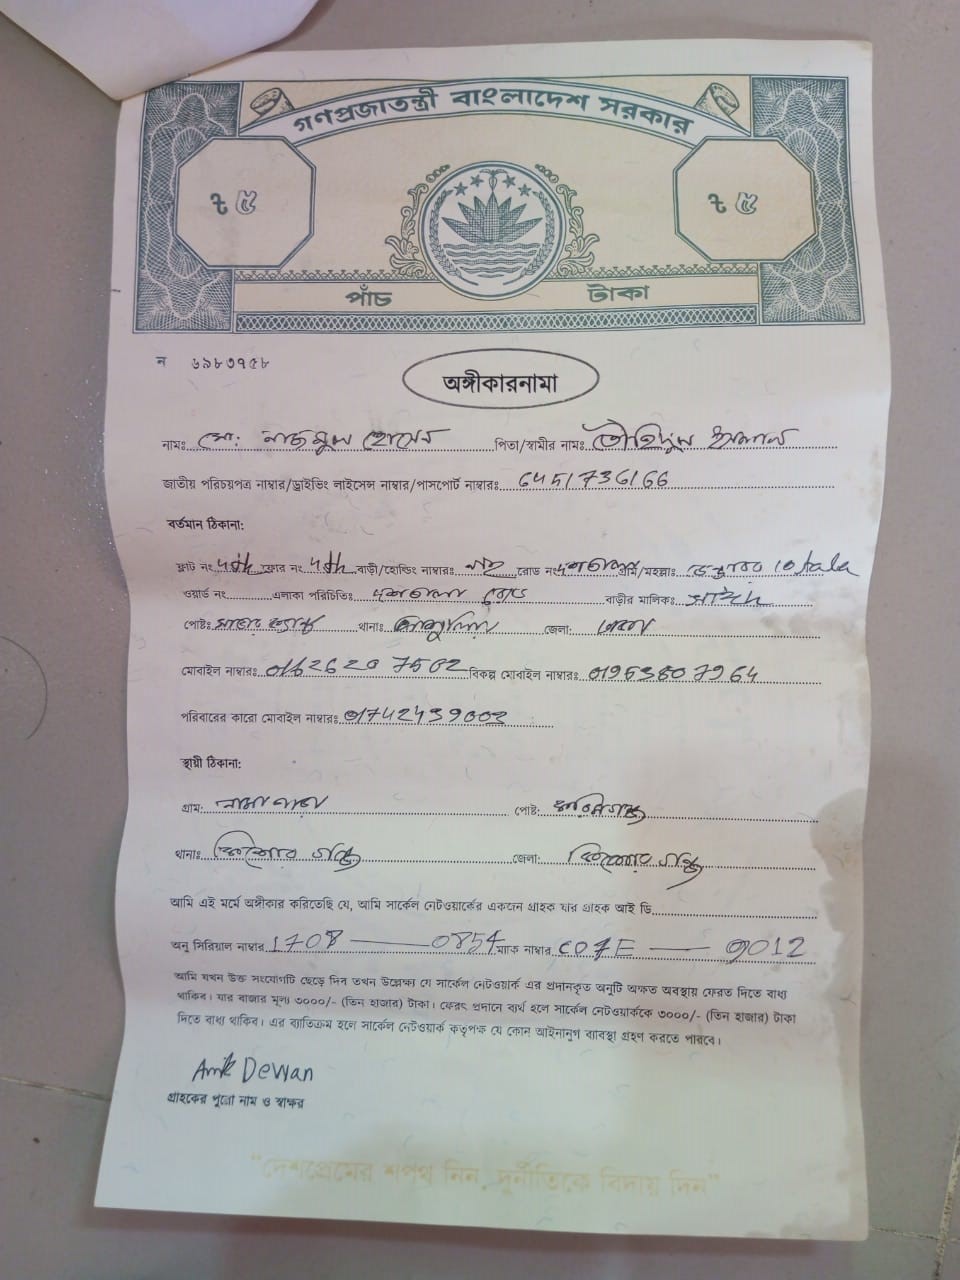 গণপ্রজাতন্ত্রী বাংলাদেশ সরকার
৳ ৫ ৳ ৫
পাঁচ টাকা
ন ৬৯৮৩৭৫৮
অঙ্গীকারনামা
নামঃ মো: নাজমুল হোসেন পিতা/স্বামীর নামঃ তৌহিদুল ইসলাম
জাতীয় পরিচয়পত্র নাম্বার/ড্রাইভিং লাইসেন্স নাম্বার/পাসপোর্ট নাম্বারঃ
বর্তমান ঠিকানা:
ফ্লাট নং 4th ফ্লোর নং 4th বাড়ী/হোল্ডিং নাম্বারঃ রোড নং গ্রাম/মহল্লাঃ 10 tala
ওয়ার্ড নং এলাকা পরিচিতিঃ রোড বাড়ীর মালিকঃ
পোষ্টঃ থানাঃ জেলা: ঢাকা
মোবাইল নাম্বারঃ বিকল্প মোবাইল নাম্বারঃ
পরিবারের কারো মোবাইল নাম্বারঃ
স্থায়ী ঠিকানা:
গ্রাম: পোষ্ট:
থানাঃ কিশোরগঞ্জ জেলা: কিশোরগঞ্জ
আমি এই মর্মে অঙ্গীকার করিতেছি যে, আমি সার্কেল নেটওয়ার্কের একজন গ্রাহক যার গ্রাহক আই ডি
অনু সিরিয়াল নাম্বার 1708 — 0854 ম্যাক নাম্বার C07E — 9012
আমি যখন উক্ত সংযোগটি ছেড়ে দিব তখন উল্লেক্ষ্য যে সার্কেল নেটওয়ার্ক এর প্রদানকৃত অনুটি অক্ষত অবস্থায় ফেরত দিতে বাধ্য
থাকিব। যার বাজার মূল্য ৩০০০/- (তিন হাজার) টাকা। ফেরৎ প্রদানে ব্যর্থ হলে সার্কেল নেটওয়ার্ককে ৩০০০/- (তিন হাজার) টাকা
দিতে বাধ্য থাকিব। এর ব্যতিক্রম হলে সার্কেল নেটওয়ার্ক কতৃপক্ষ যে কোন আইনানুগ ব্যাবস্থা গ্রহণ করতে পারবে।
Dewan
গ্রাহকের পুরো নাম ও স্বাক্ষর
"দেশপ্রেমের শপথ নিন, দুর্নীতিকে বিদায় দিন"